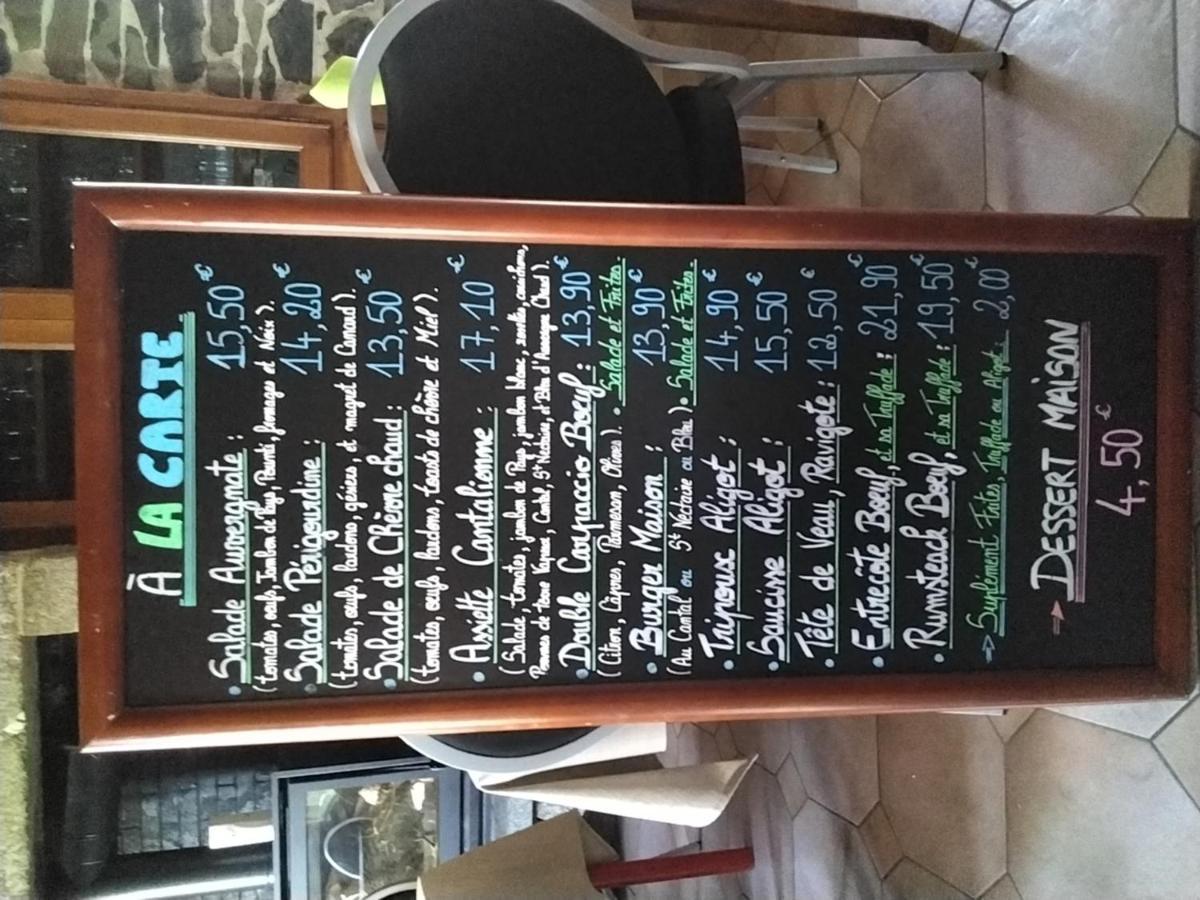 À LA CARTE
• Salade Auvergnate : 15,50€
(tomates, oeufs, Jambon de Pays, Pounti, fromages et Noix).
• Salade Périgourdine : 14,20€
(tomates, oeufs, lardons, gésiers, et magret de Canard).
• Salade de Chèvre chaud : 13,50€
(tomates, oeufs, lardons, toasts de chèvre et Miel).
• Assiette Cantalienne : 17,10€
(Salade, tomates, jambon de Pays, jambon blanc, cornichons,
Pommes de terre Vapeur, Cantal, St Nectaire, et Bleu d'Auvergne Chaud).
• Double Carpaccio Boeuf : 13,90€
(Citron, Câpres, Parmesan, Olives). • Salade et Frites.
• Burger Maison : 13,90€
(Au Cantal ou St Nectaire ou Bleu). • Salade et Frites.
• Tripoux Aligot : 14,90€
• Saucisse Aligot : 15,50€
• Tête de Veau, Ravigote : 12,50€
• Entrecôte Boeuf, et sa Truffade : 21,90€
• Rumsteack Boeuf, et sa Truffade : 19,50€
=> Suplément Frites, Truffade ou Aligot : 2,00€
→ DESSERT MAISON
4,50€